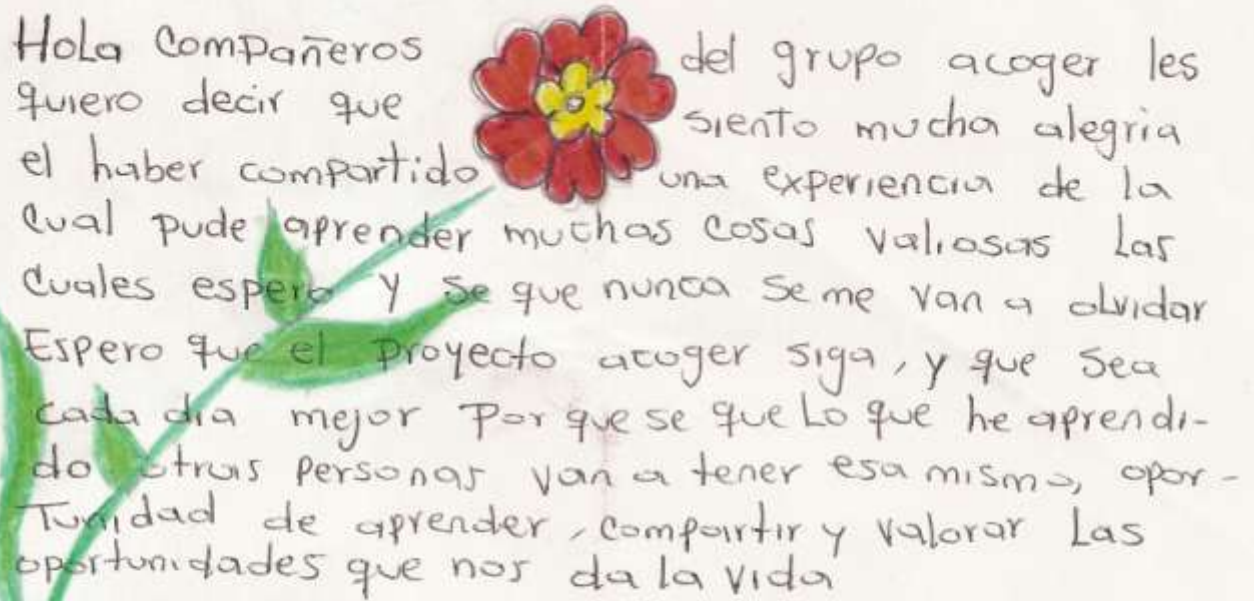 Hola Compañeros del grupo acoger les
quiero decir que siento mucha alegria
el haber compartido una experiencia de la
cual pude aprender muchas cosas valiosas las
cuales espero y se que nunca se me van a olvidar
Espero que el proyecto acoger siga, y que sea
cada dia mejor Por que se que lo que he aprendi-
do otras personas van a tener esa misma, opor-
Tunidad de aprender, compartir y valorar las
oportunidades que nos da la vida